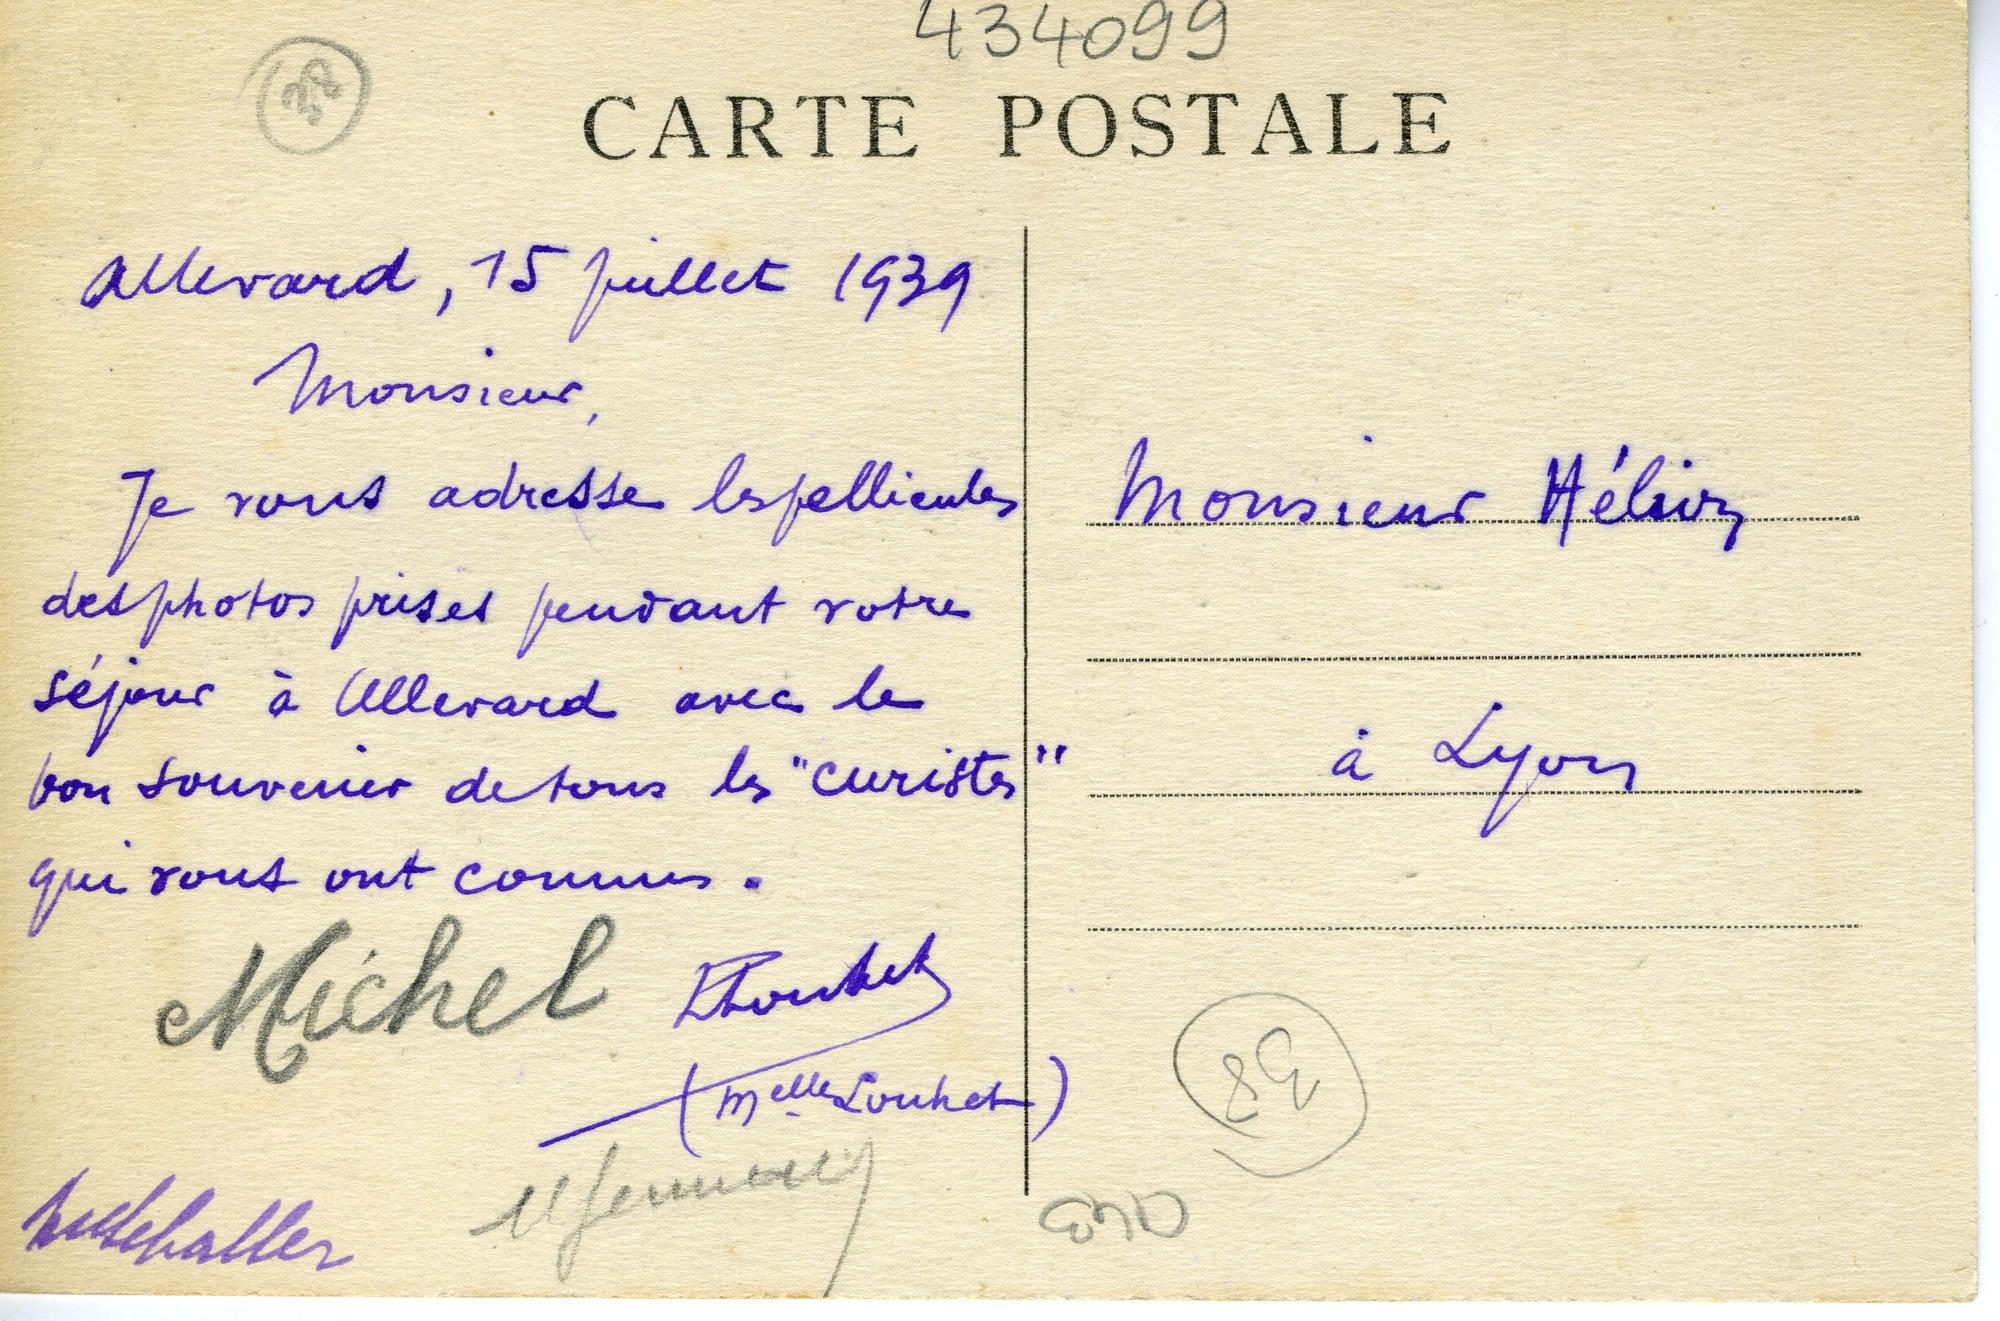 434099
38
CARTE POSTALE
Allevard, 15 juillet 1939
Monsieur,
Je vous adresse les pellicules
des photos prises pendant votre
séjour à Allevard avec le
bon souvenir de tous les "curistes"
qui vous ont connus.
Michel
Louhet
(Melle Louhet)
Monsieur Hélion
à Lyon
38